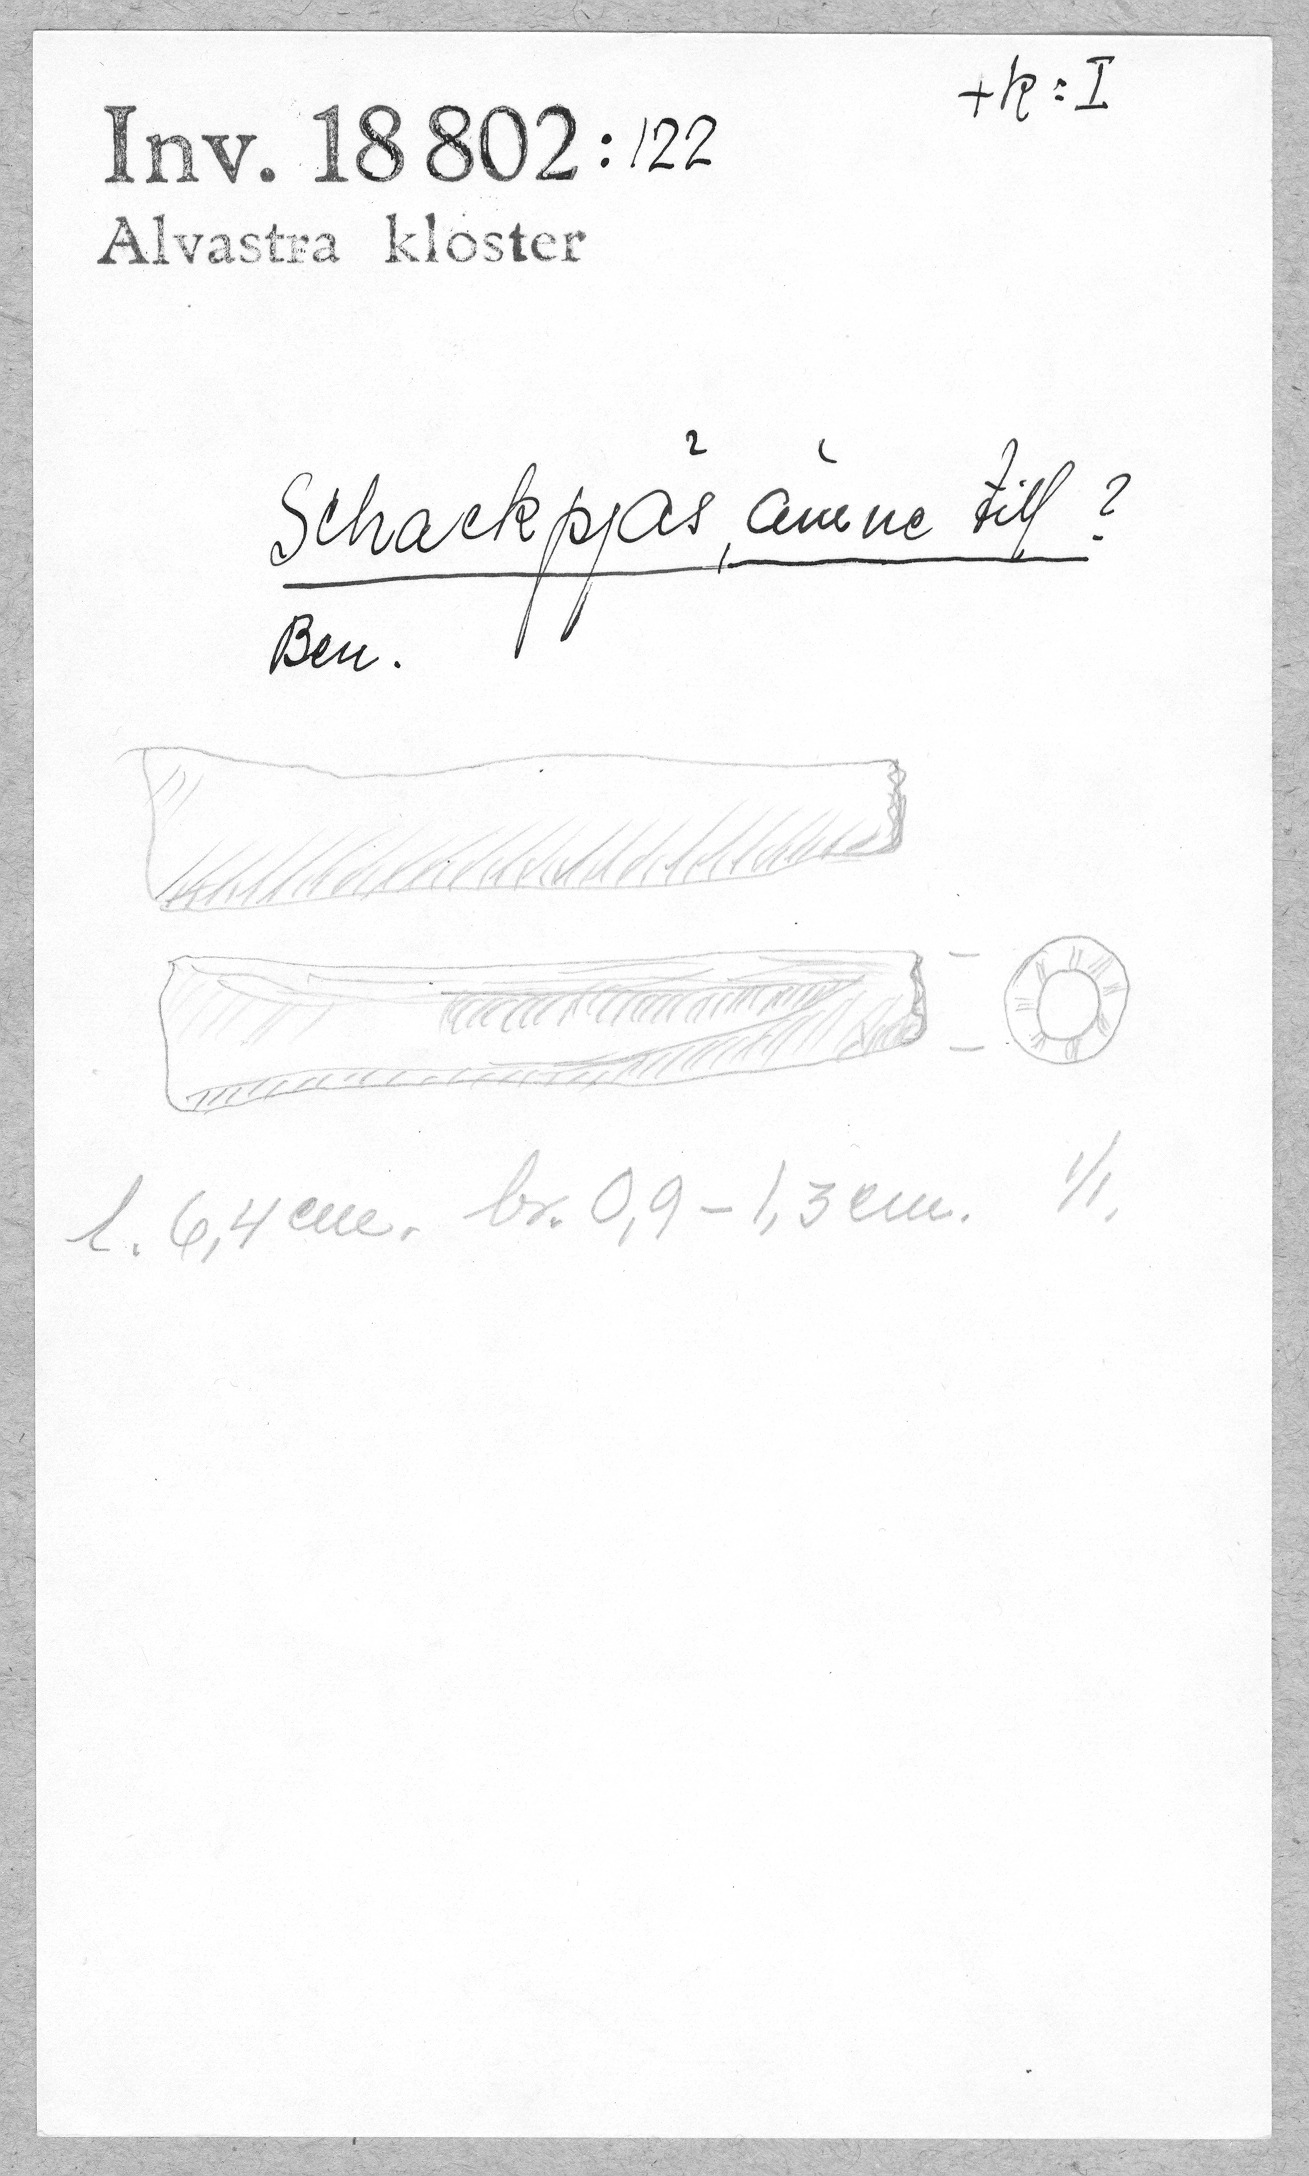 +k:I
Inv. 18 802:122
Alvastra kloster
Schackpjäs, ämne till?
Ben.
l. 6,4 cm. br. 0,9 – 1,3 cm. 1/1.